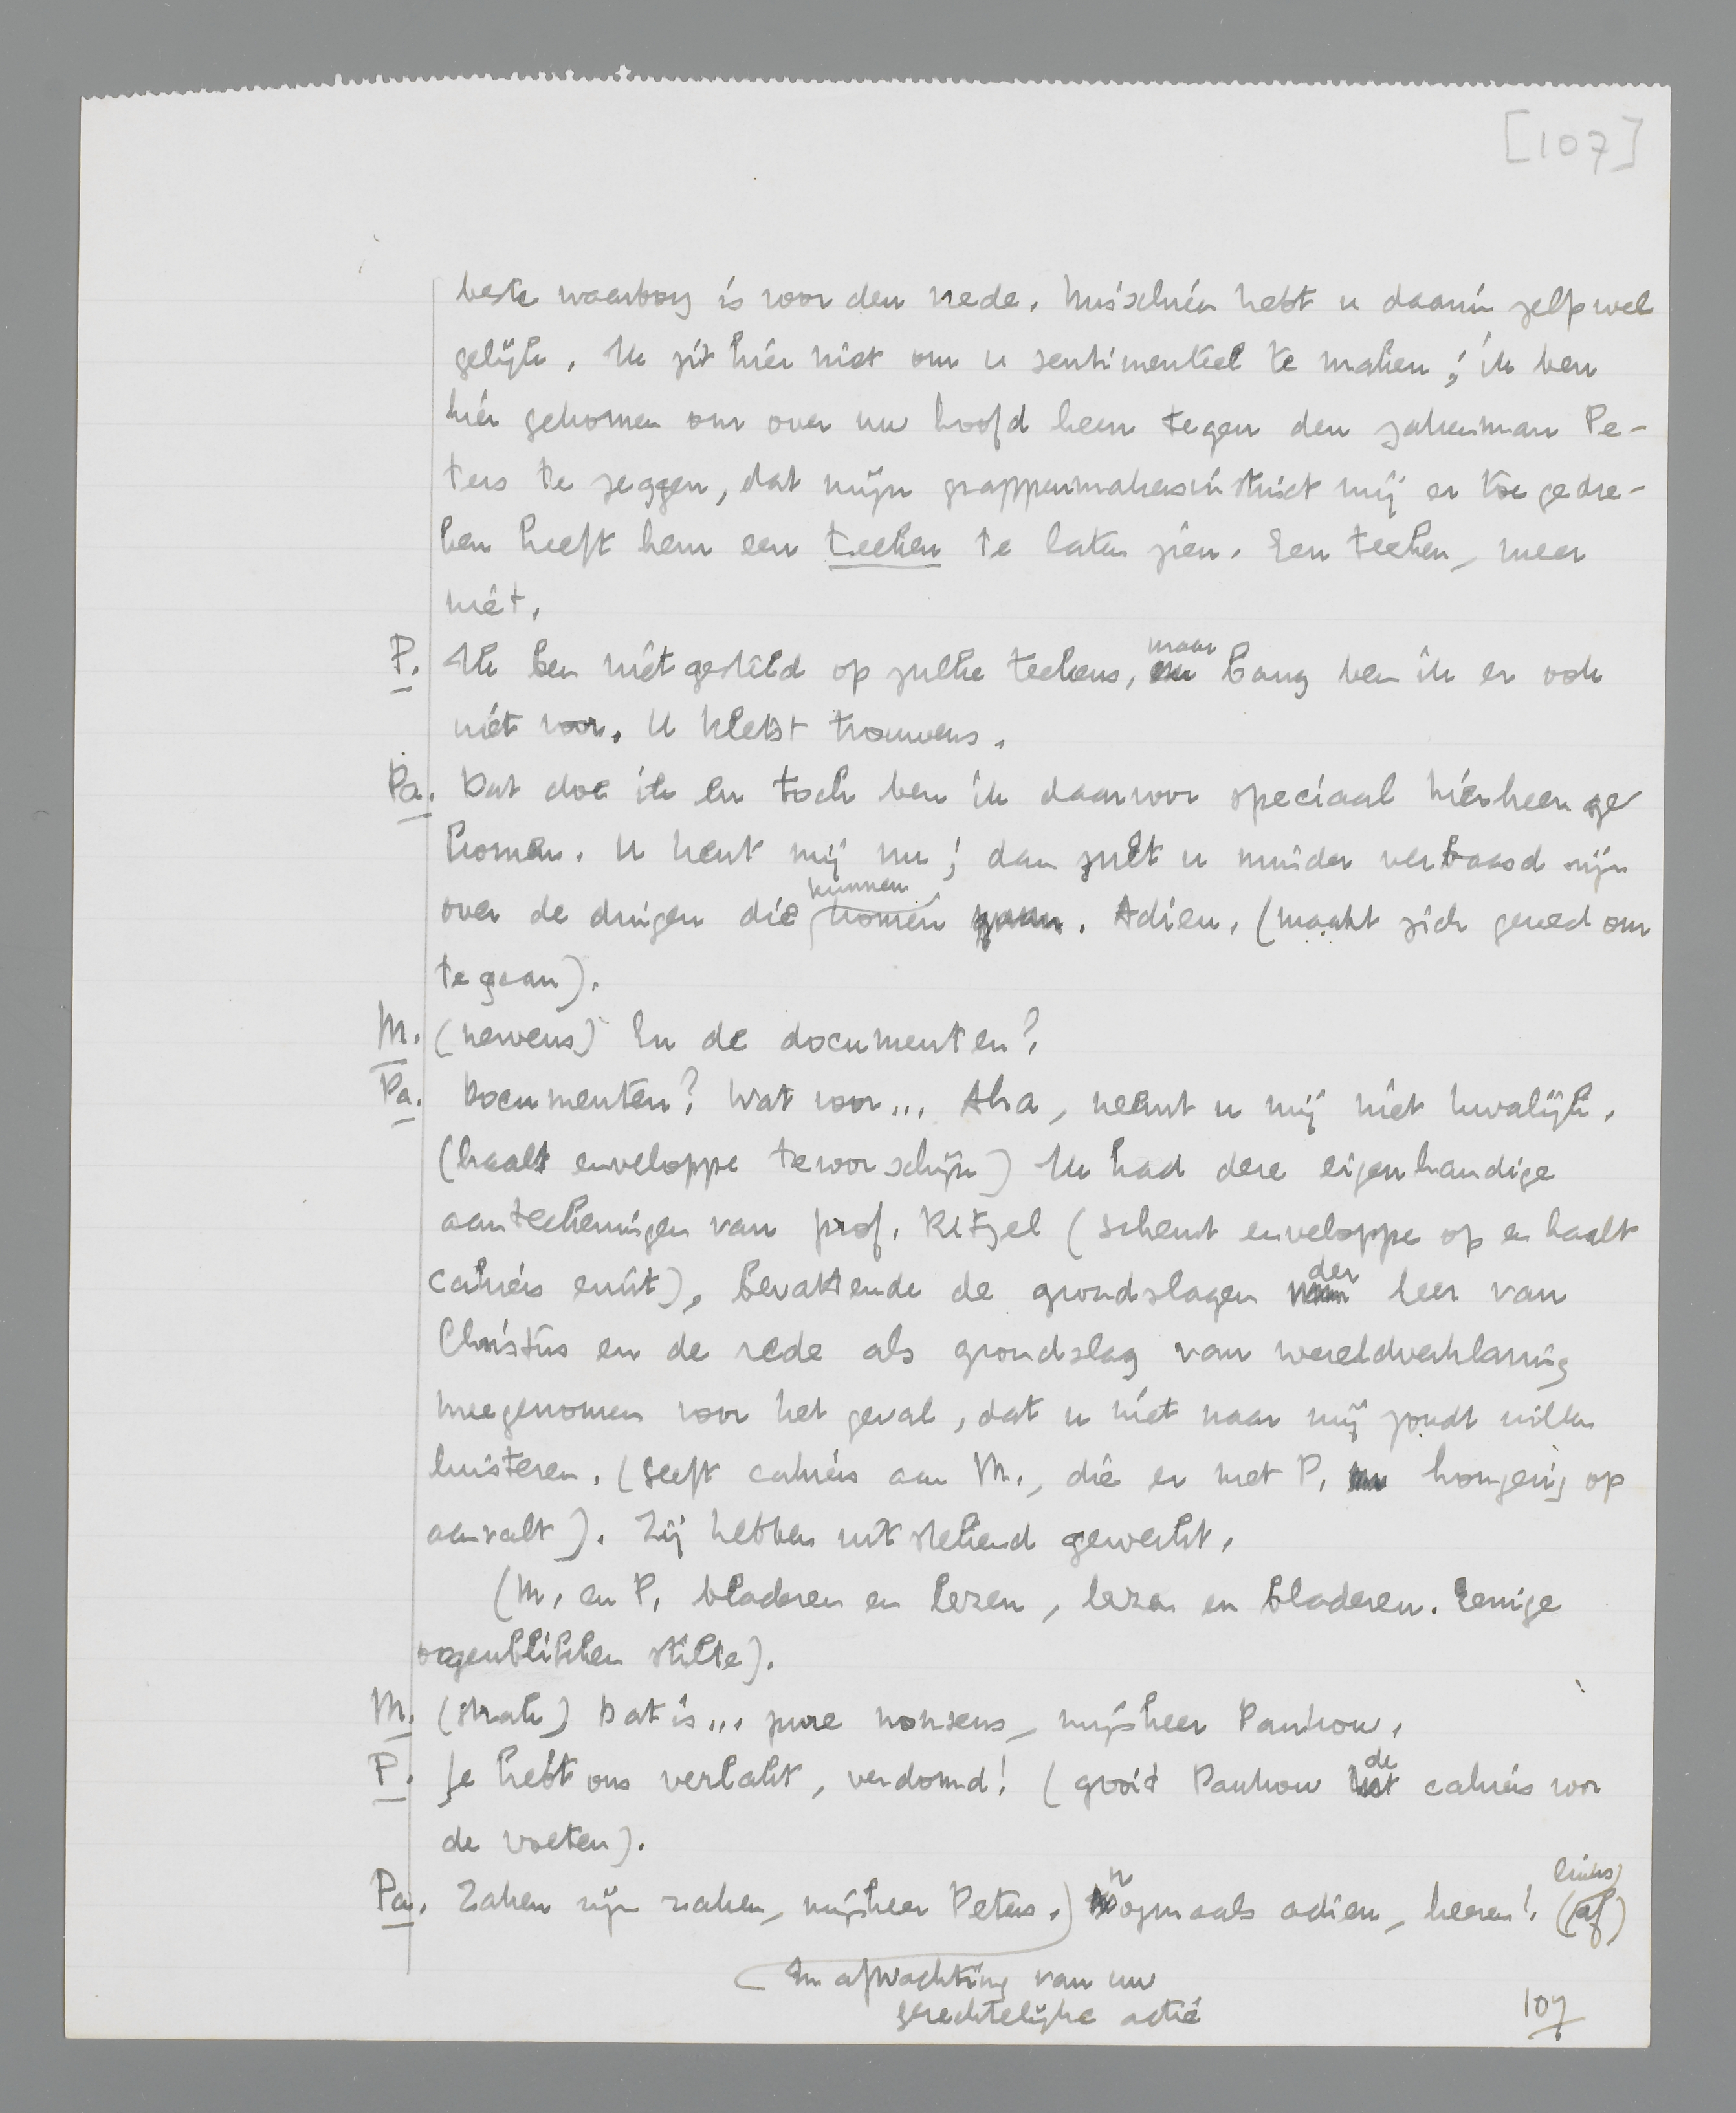 [107]
beste waarborg is voor den vrede. Misschien hebt u daarin zelfs wel
gelijk. Ik zit hier niet om u sentimenteel te maken; ik ben
hier gekomen om over uw hoofd heen tegen den zakenman Pe-
ters te zeggen, dat mijn grappenmakersinstinct mij er toe gedre-
ven heeft hem een teeken te laten zien. Een teeken, meer
niet.
P. Ik ben niet gesteld op zulke teekens, maar bang ben ik er ook
niet voor. U kletst trouwens.
Pa. Dat doe ik en toch ben ik daarvoor speciaal hierheen ge
komen. U kent mij nu; dan zult u minder verbaasd zijn
over de dingen die kunnen komen. Adieu. (maakt zich gereed om
te gaan).
M. (nerveus) En de documenten?
Pa. Documenten? Wat voor... Aha, neemt u mij niet kwalijk.
(haalt enveloppe tevoorschijn) Ik had deze eigenhandige
aanteekeningen van prof. Ritzel (scheurt enveloppe op en haalt
cahiers eruit), bevattende de grondslagen der leer van
Christus en de rede als grondslag van wereldverklaring
meegenomen voor het geval, dat u niet naar mij zoudt willen
luisteren. (Geeft cahiers aan M., die er met P. hongerig op
aanvalt). Zij hebben uitstekend gewerkt.
(M. en P. bladeren en lezen, lezen en bladeren. Eenige
oogenblikken stilte).
M. (strak) Dat is... pure nonsens, mijnheer Pantrow.
P. Je hebt ons verlakt, verdomd! (gooit Pantrow de cahiers voor
de voeten).
Pa. Zaken zijn zaken, mijnheer Peters.) nogmaals adieu, heeren! (links af)
In afwachting van uw
gerechtelijke actie
107